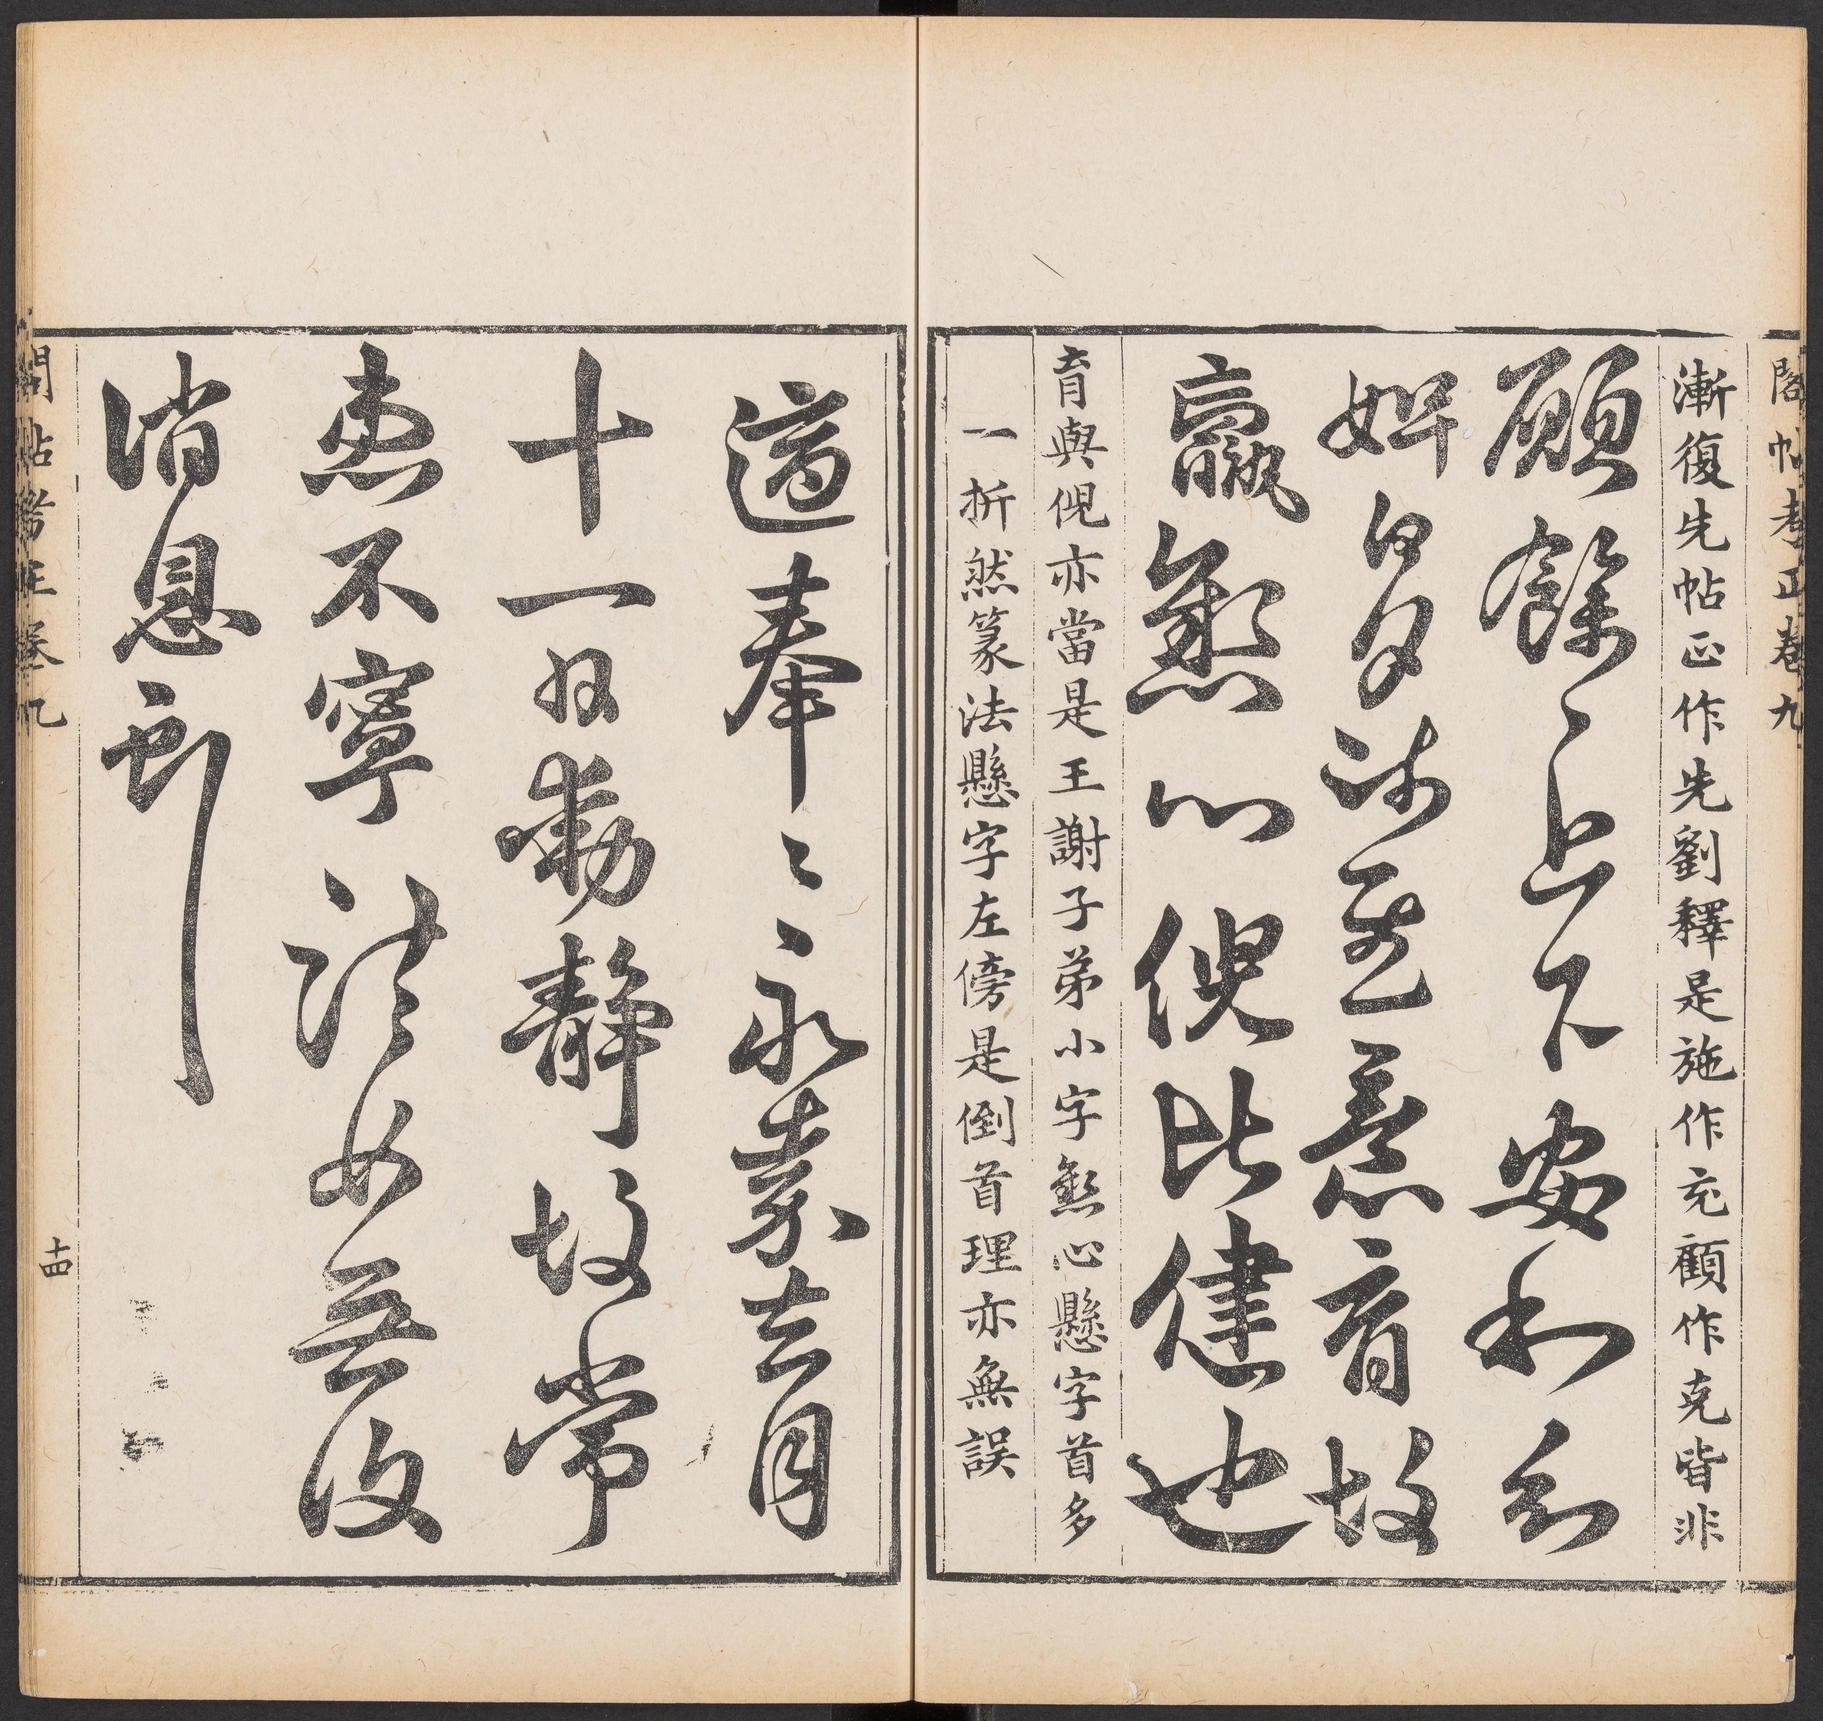 閣帖考正卷九
漸復先帖正作先劉釋是施作充顧作克皆非
願餘上下安和知
婢日夕疏至憙育故
羸㷀心倪比健也
育與倪亦當是王謝子弟小字㷀心懸字首多
一折然篆法懸字左傍是倒首理亦無誤
適奉〻永嘉去月
十一日動靜故常
患不寧諸女無復
消息獻
閣帖考正卷九
十四